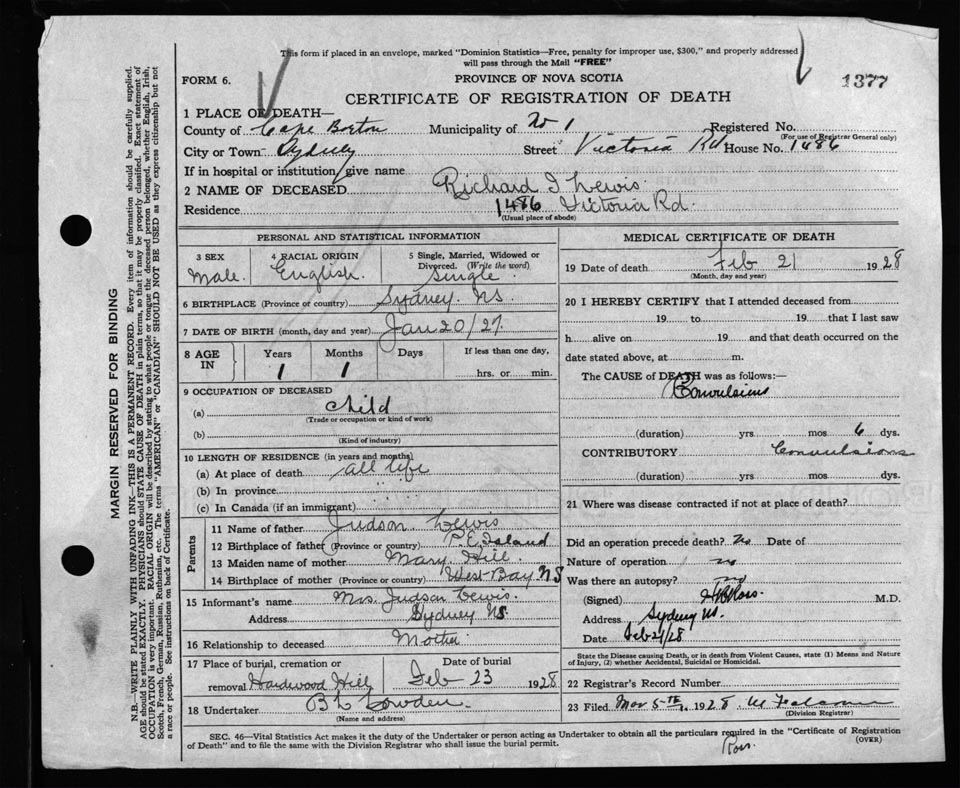 This form if placed in an envelope, marked "Dominion Statistics—Free, penalty for improper use, $300," and properly addressed
will pass through the Mail "FREE"
FORM 6.
PROVINCE OF NOVA SCOTIA
1377
CERTIFICATE OF REGISTRATION OF DEATH
1 PLACE OF DEATH—
County of Cape Breton Municipality of W 1 Registered No.
(For use of Registrar General only)
City or Town Sydney Street Victoria Rd House No. 1486
If in hospital or institution, give name
2 NAME OF DECEASED Richard I Lewis
Residence 1486 Victoria Rd.
(Usual place of abode)
PERSONAL AND STATISTICAL INFORMATION
3 SEX Male.
4 RACIAL ORIGIN English.
5 Single, Married, Widowed or Divorced. (Write the word) Single
6 BIRTHPLACE (Province or country) Sydney. NS
7 DATE OF BIRTH (month, day and year) Jan 20/27.
8 AGE IN
Years 1
Months 1
Days
If less than one day,
hrs. or min.
9 OCCUPATION OF DECEASED
(a) child
(Trade or occupation or kind of work)
(b)
(Kind of industry)
10 LENGTH OF RESIDENCE (in years and months)
(a) At place of death all life
(b) In province
(c) In Canada (if an immigrant)
Parents
11 Name of father Judson Lewis
12 Birthplace of father (Province or country) P.E. Island
13 Maiden name of mother Mary Hill
14 Birthplace of mother (Province or country) West Bay NS
15 Informant's name Mrs. Judson Lewis.
Address Sydney NS.
16 Relationship to deceased Mother
17 Place of burial, cremation or
removal Hardwood Hill
Date of burial
Feb 23 1928
18 Undertaker
(Name and address)
MEDICAL CERTIFICATE OF DEATH
19 Date of death Feb 21 1928
(Month, day and year)
20 I HEREBY CERTIFY that I attended deceased from
19 to 19 that I last saw
h alive on 19 and that death occurred on the
date stated above, at m.
The CAUSE of DEATH was as follows:
Convulsions
(duration) yrs mos 6 dys.
CONTRIBUTORY Convulsions
(duration) yrs mos dys.
21 Where was disease contracted if not at place of death?
Did an operation precede death? No Date of
Nature of operation no
Was there an autopsy? no
(Signed) Ross. M.D.
Address Sydney NS.
Date Feb 21/28
State the Disease causing Death, or in death from Violent Causes, state (1) Means and Nature
of Injury, (2) whether Accidental, Suicidal or Homicidal.
22 Registrar's Record Number
23 Filed Mar 5-TH, 1928
(Division Registrar)
SEC. 46—Vital Statistics Act makes it the duty of the Undertaker or person acting as Undertaker to obtain all the particulars required in the "Certificate of Registration
of Death" and to file the same with the Division Registrar who shall issue the burial permit.
(OVER)
Ross.
MARGIN RESERVED FOR BINDING
N.B.—WRITE PLAINLY WITH UNFADING INK—THIS IS A PERMANENT RECORD. Every item of information should be carefully supplied.
AGE should be stated EXACTLY. PHYSICIANS should STATE CAUSE OF DEATH in plain terms, so that it may be properly classified. Exact statement of
OCCUPATION is very important. RACIAL ORIGIN will be described by stating to what people or tongue the deceased person belonged, whether English, Irish,
Scotch, French, German, Russian, Ruthenian, etc. The terms "AMERICAN" or "CANADIAN" SHOULD NOT BE USED as they express citizenship but not
a race or people. See instructions on back of Certificate.